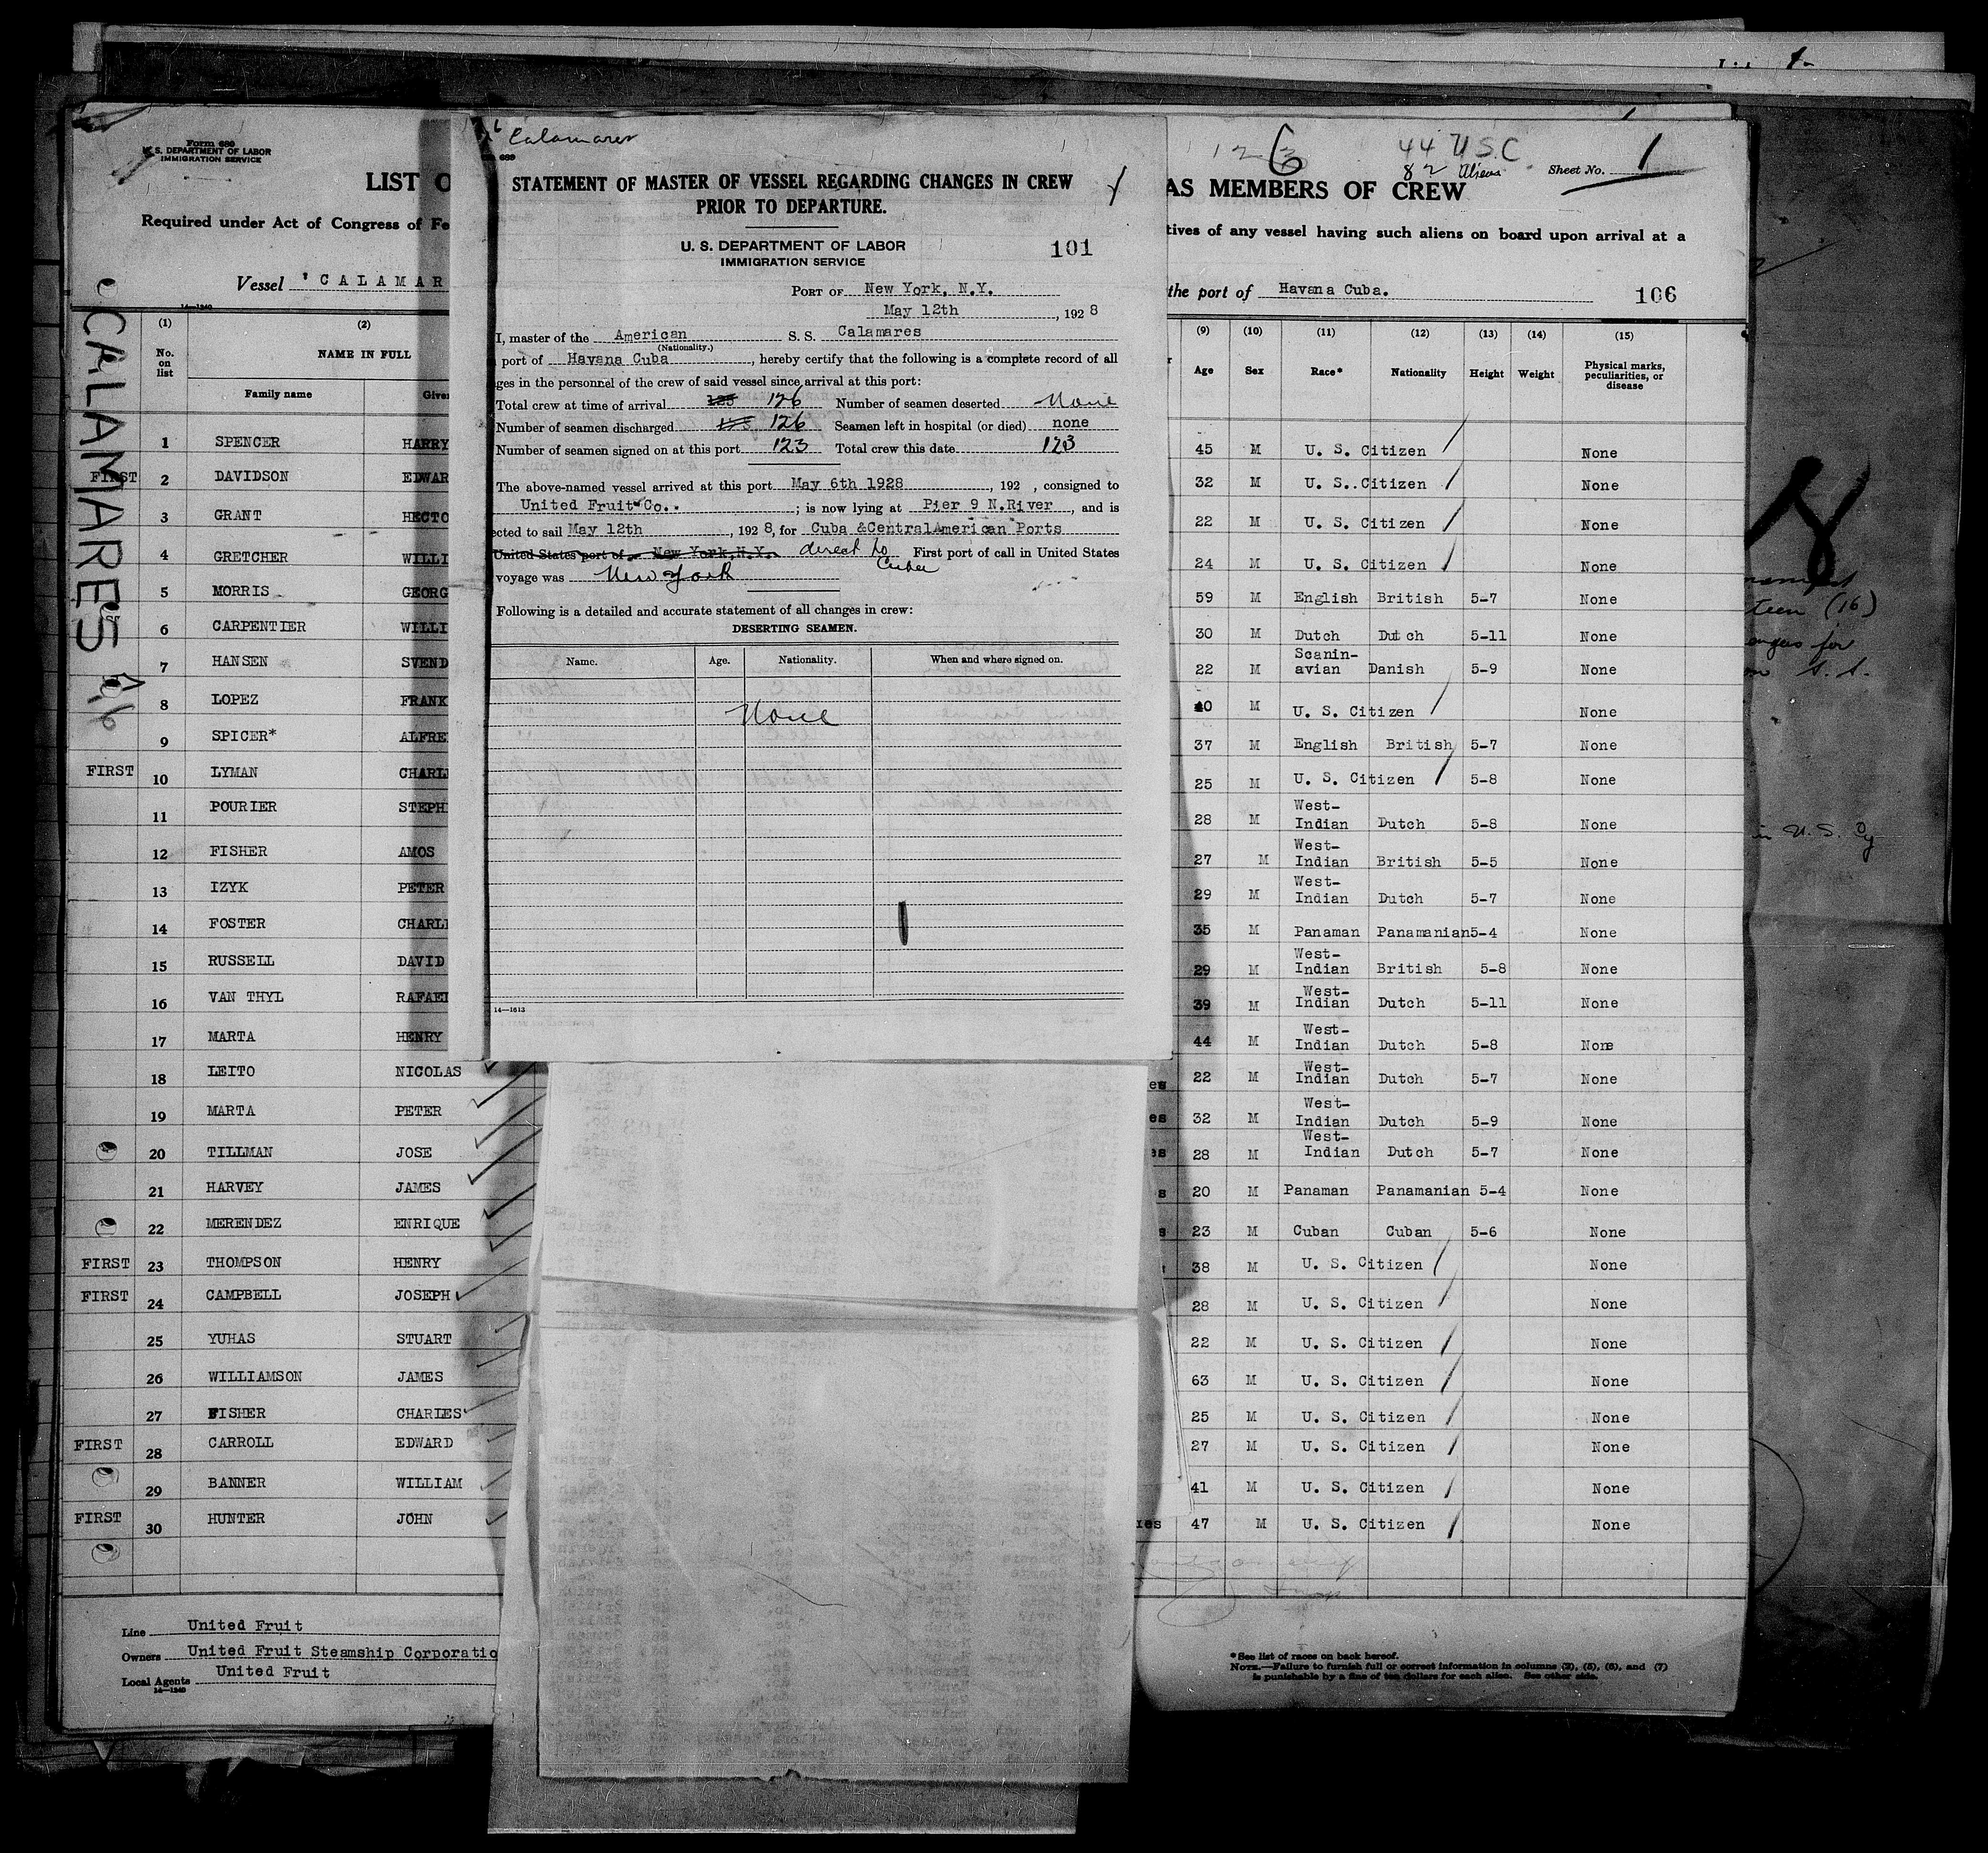 Calamares
STATEMENT OF MASTER OF VESSEL REGARDING CHANGES IN CREW
PRIOR TO DEPARTURE.
U. S. DEPARTMENT OF LABOR
IMMIGRATION SERVICE
101
PORT OF New York, N.Y.
May 12th, 1928
I, master of the American S. S. Calamares
(Nationality.)
port of Havana Cuba, hereby certify that the following is a complete record of all
ges in the personnel of the crew of said vessel since arrival at this port:
Total crew at time of arrival 126 Number of seamen deserted None
Number of seamen discharged 126 Seamen left in hospital (or died) none
Number of seamen signed on at this port 123 Total crew this date 123
The above-named vessel arrived at this port May 6th 1928, 192 , consigned to
United Fruit Co. ; is now lying at Pier 9 N.River, and is
cted to sail May 12th, 1928, for Cuba &CentralAmerican Ports
United States port of New York,N.Y. direct to Cuba First port of call in United States
voyage was New York
Following is a detailed and accurate statement of all changes in crew:
DESERTING SEAMEN.
Name. Age. Nationality. When and where signed on.
None
14—1613
Form 680
U. S. DEPARTMENT OF LABOR
IMMIGRATION SERVICE
LIST O
AS MEMBERS OF CREW
126
44 U S.C.
82 Aliens
Sheet No. 1
Required under Act of Congress of Fe
tives of any vessel having such aliens on board upon arrival at a
Vessel 'CALAMAR
the port of Havana Cuba.
106
14—1240
CALAMARES
(1) (2) (9) (10) (11) (12) (13) (14) (15)
No. on list NAME IN FULL Age Sex Race* Nationality Height Weight Physical marks, peculiarities, or disease
Family name Give
1 SPENCER HARRY 45 M U. S. Citizen None
FIRST 2 DAVIDSON EDWAR 32 M U. S..Citizen None
3 GRANT HECTO 22 M U. S. Citizen None
4 GRETCHER WILLI 24 M U. S. Citizen None
5 MORRIS GEORG 59 M English British 5-7 None
6 CARPENTIER WILLI 30 M Dutch Dutch 5-11 None
7 HANSEN SVEND 22 M Scanin-avian Danish 5-9 None
8 LOPEZ FRANK 40 M U. S. Citizen None
9 SPICER* ALFRE 37 M English British 5-7 None
FIRST 10 LYMAN CHARL 25 M U. S. Citizen 5-8 None
11 POURIER STEPH 28 M West-Indian Dutch 5-8 None
12 FISHER AMOS 27 M West-Indian British 5-5 None
13 IZYK PETER 29 M West-Indian Dutch 5-7 None
14 FOSTER CHARL 35 M Panaman Panamanian5-4 None
15 RUSSELL DAVID 29 M West-Indian British 5-8 None
16 VAN THYL RAFAEL 39 M West-Indian Dutch 5-11 None
17 MARTA HENRY 44 M West-Indian Dutch 5-8 None
18 LEITO NICOLAS es 22 M West-Indian Dutch 5-7 None
19 MARTA PETER es 32 M West-Indian Dutch 5-9 None
20 TILLMAN JOSE es 28 M West-Indian Dutch 5-7 None
21 HARVEY JAMES s 20 M Panaman Panamanian 5-4 None
22 MERENDEZ ENRIQUE s 23 M Cuban Cuban 5-6 None
FIRST 23 THOMPSON HENRY 38 M U. S. Citizen None
FIRST 24 CAMPBELL JOSEPH 28 M U. S. Citizen None
25 YUHAS STUART 22 M U. S. Citizen None
26 WILLIAMSON JAMES 63 M U. S. Citizen None
27 FISHER CHARLES 25 M U. S. Citizen None
FIRST 28 CARROLL EDWARD 27 M U. S. Citizen None
29 BANNER WILLIAM 41 M U. S. Citizen None
FIRST 30 HUNTER JOHN 47 M U. S. Citizen None
Line United Fruit
Owners United Fruit Steamship Corporatio
Local Agents United Fruit
14—1240
*See list of races on back hereof.
NOTE.—Failure to furnish full or correct information in columns (2), (5), (6), and (7)
is punishable by a fine of ten dollars for each alien. See other side.
teen (16)
for
S. S.
in U. S.